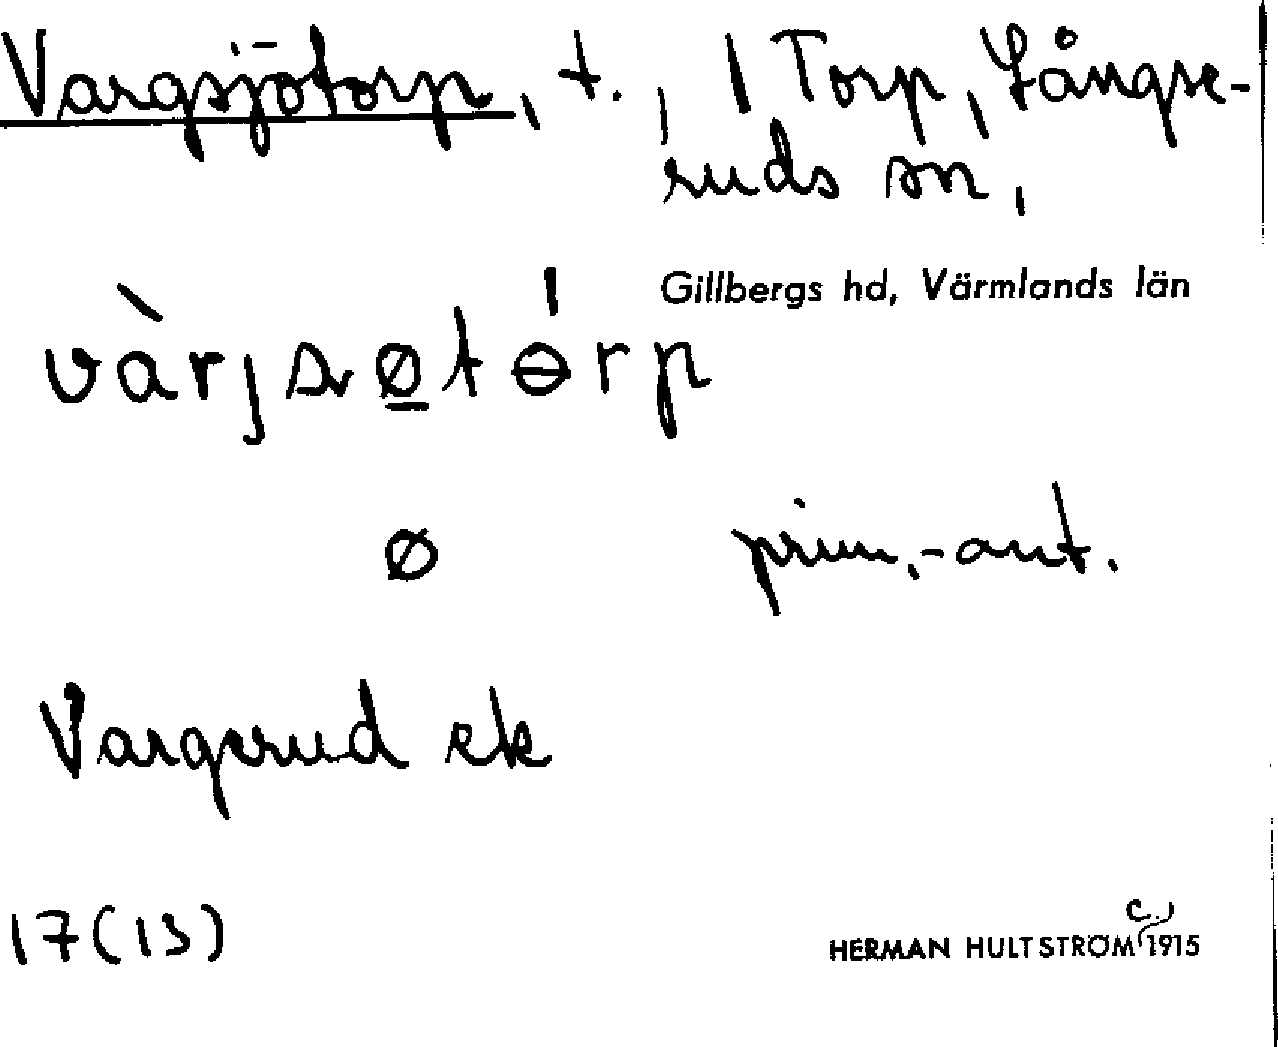 Vargsjötorp, t., 1 Torp, Långse-
ruds sn,
Gillbergs hd, Värmlands län
vàrjsøtɵ́rp
ø prim.-ant.
Vargerud ek
17(13)
HERMAN HULTSTRÖM c., 1915